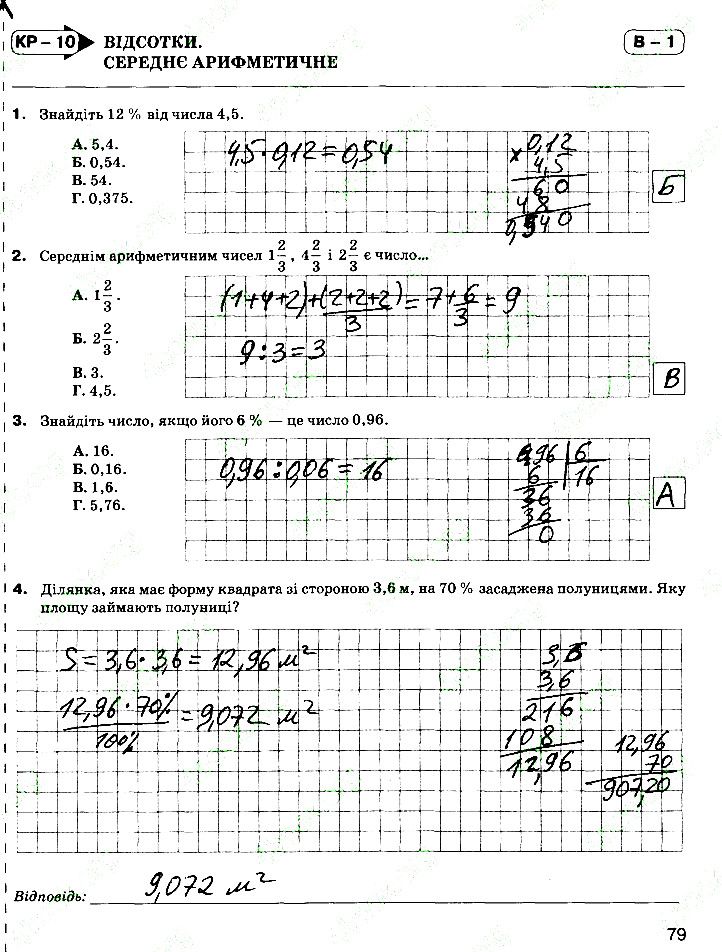 КР – 10
ВІДСОТКИ.
СЕРЕДНЄ АРИФМЕТИЧНЕ
В – 1
1. Знайдіть 12 % від числа 4,5.
А. 5,4.
Б. 0,54.
В. 54.
Г. 0,375.
4,5·0,12=0,54
0,12
× 4,5
60
48
0,540
Б
2. Середнім арифметичним чисел 1 2/3, 4 2/3 і 2 2/3 є число...
А. 1 2/3.
Б. 2 2/3.
В. 3.
Г. 4,5.
(1+4+2)+(2+2+2)/3=7+6/3=9
9:3=3
В
3. Знайдіть число, якщо його 6 % — це число 0,96.
А. 16.
Б. 0,16.
В. 1,6.
Г. 5,76.
0,96:0,06=16
96 | 6
6 16
36
36
0
А
4. Ділянка, яка має форму квадрата зі стороною 3,6 м, на 70 % засаджена полуницями. Яку
площу займають полуниці?
S=3,6·3,6=12,96 м²
12,96·70%/100%=9,072 м²
3,6
3,6
216
108
12,96
12,96
70
907,20
Відповідь: 9,072 м²
79